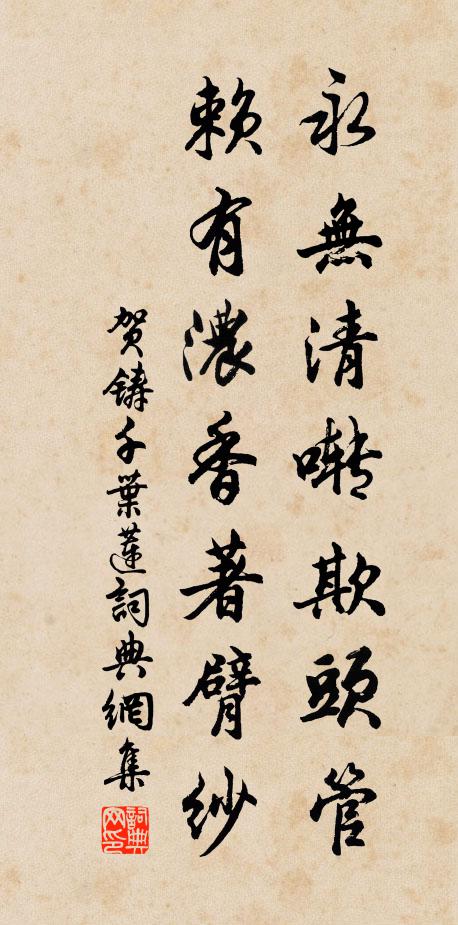 永無清囀欺頭管
賴有濃香著臂紗
賀鑄千葉蓮詞典網集
詞典網印